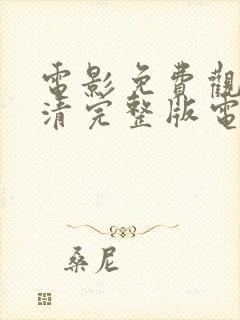 電影免費觀
清完整版電
桑尼